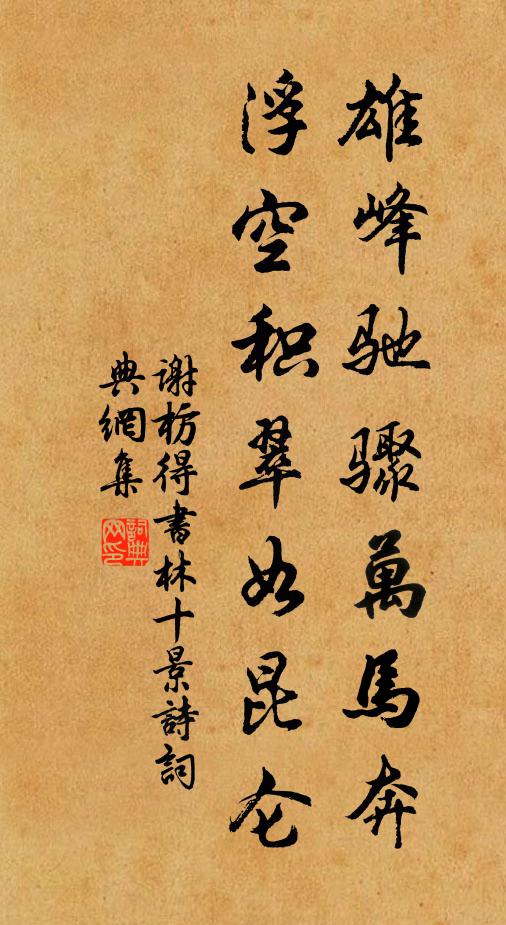 雄峰驰骤萬馬奔
浮空积翠如昆仑
谢枋得書林十景詩詞
典網集
詞典网印